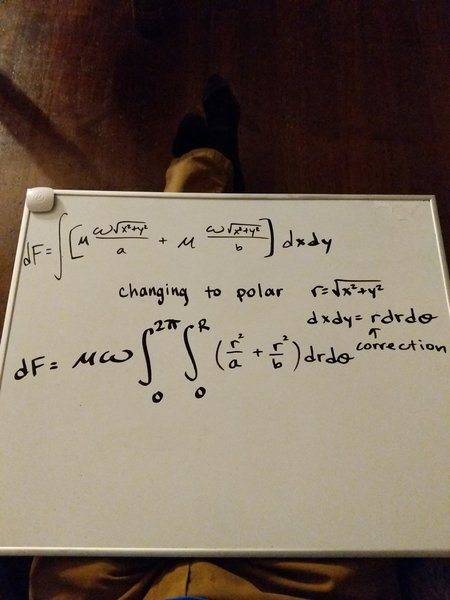 dF = ∫ [ μ ω√x²+y² / a + μ ω√x²+y² / b ] dxdy
changing to polar r = √x²+y²
dxdy = rdrdθ
↑
correction
dF = μω ∫₀^2π ∫₀^R ( r²/a + r²/b ) drdθ